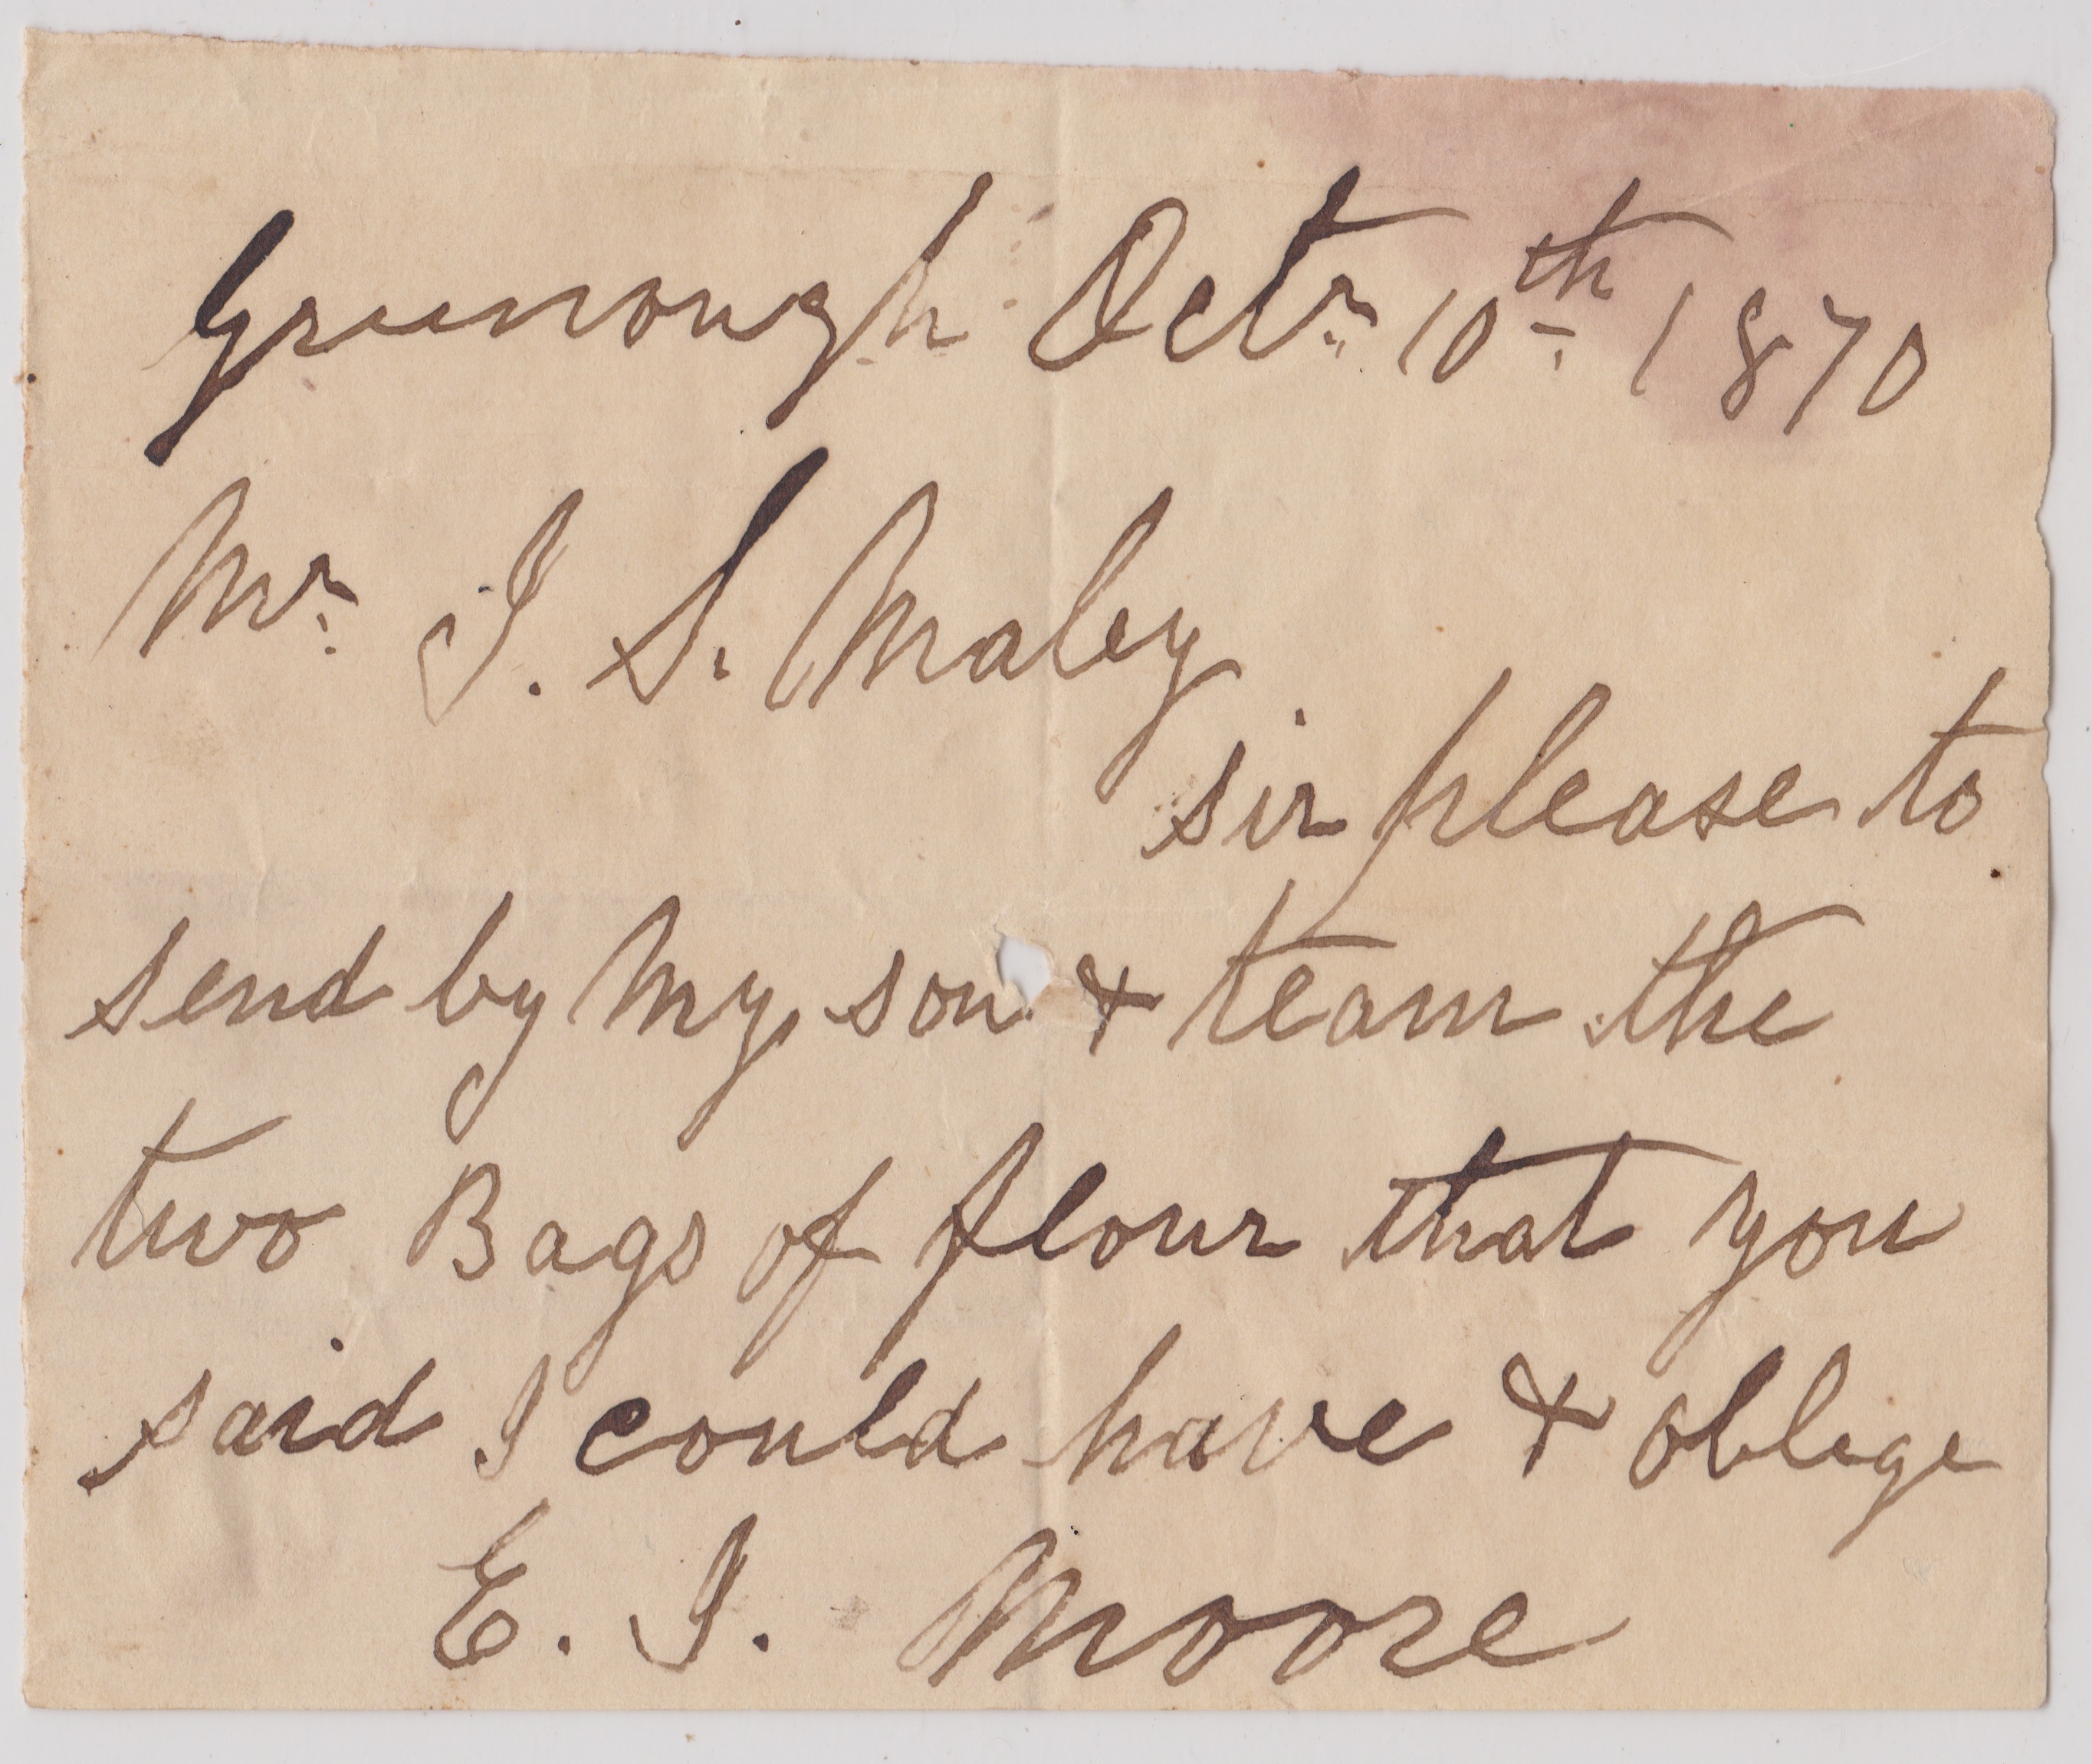 Greenough Octr 10th 1870
Mr J. S. Maley
sir please to
send by My son & team the
two Bags of flour that you
said I could have & oblege
E. J. Moore